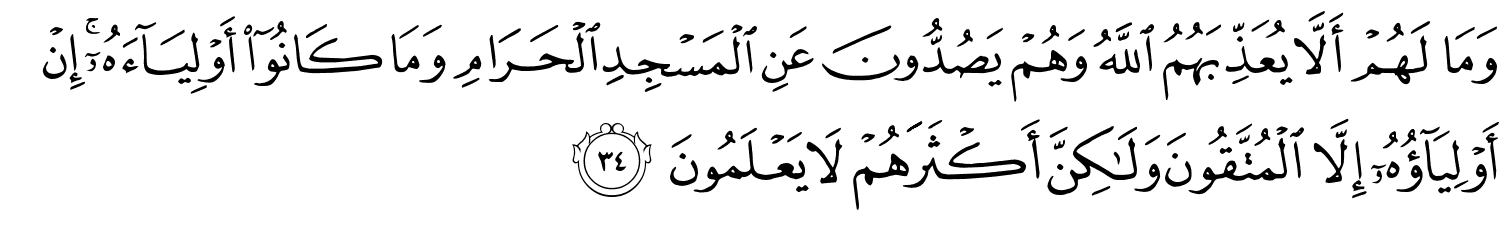 وَمَا لَهُمْ أَلَّا يُعَذِّبَهُمُ ٱللَّهُ وَهُمْ يَصُدُّونَ عَنِ ٱلْمَسْجِدِ ٱلْحَرَامِ وَمَا كَانُوٓا۟ أَوْلِيَآءَهُۥٓ ۚ إِنْ
أَوْلِيَآؤُهُۥٓ إِلَّا ٱلْمُتَّقُونَ وَلَـٰكِنَّ أَكْثَرَهُمْ لَا يَعْلَمُونَ ٣٤